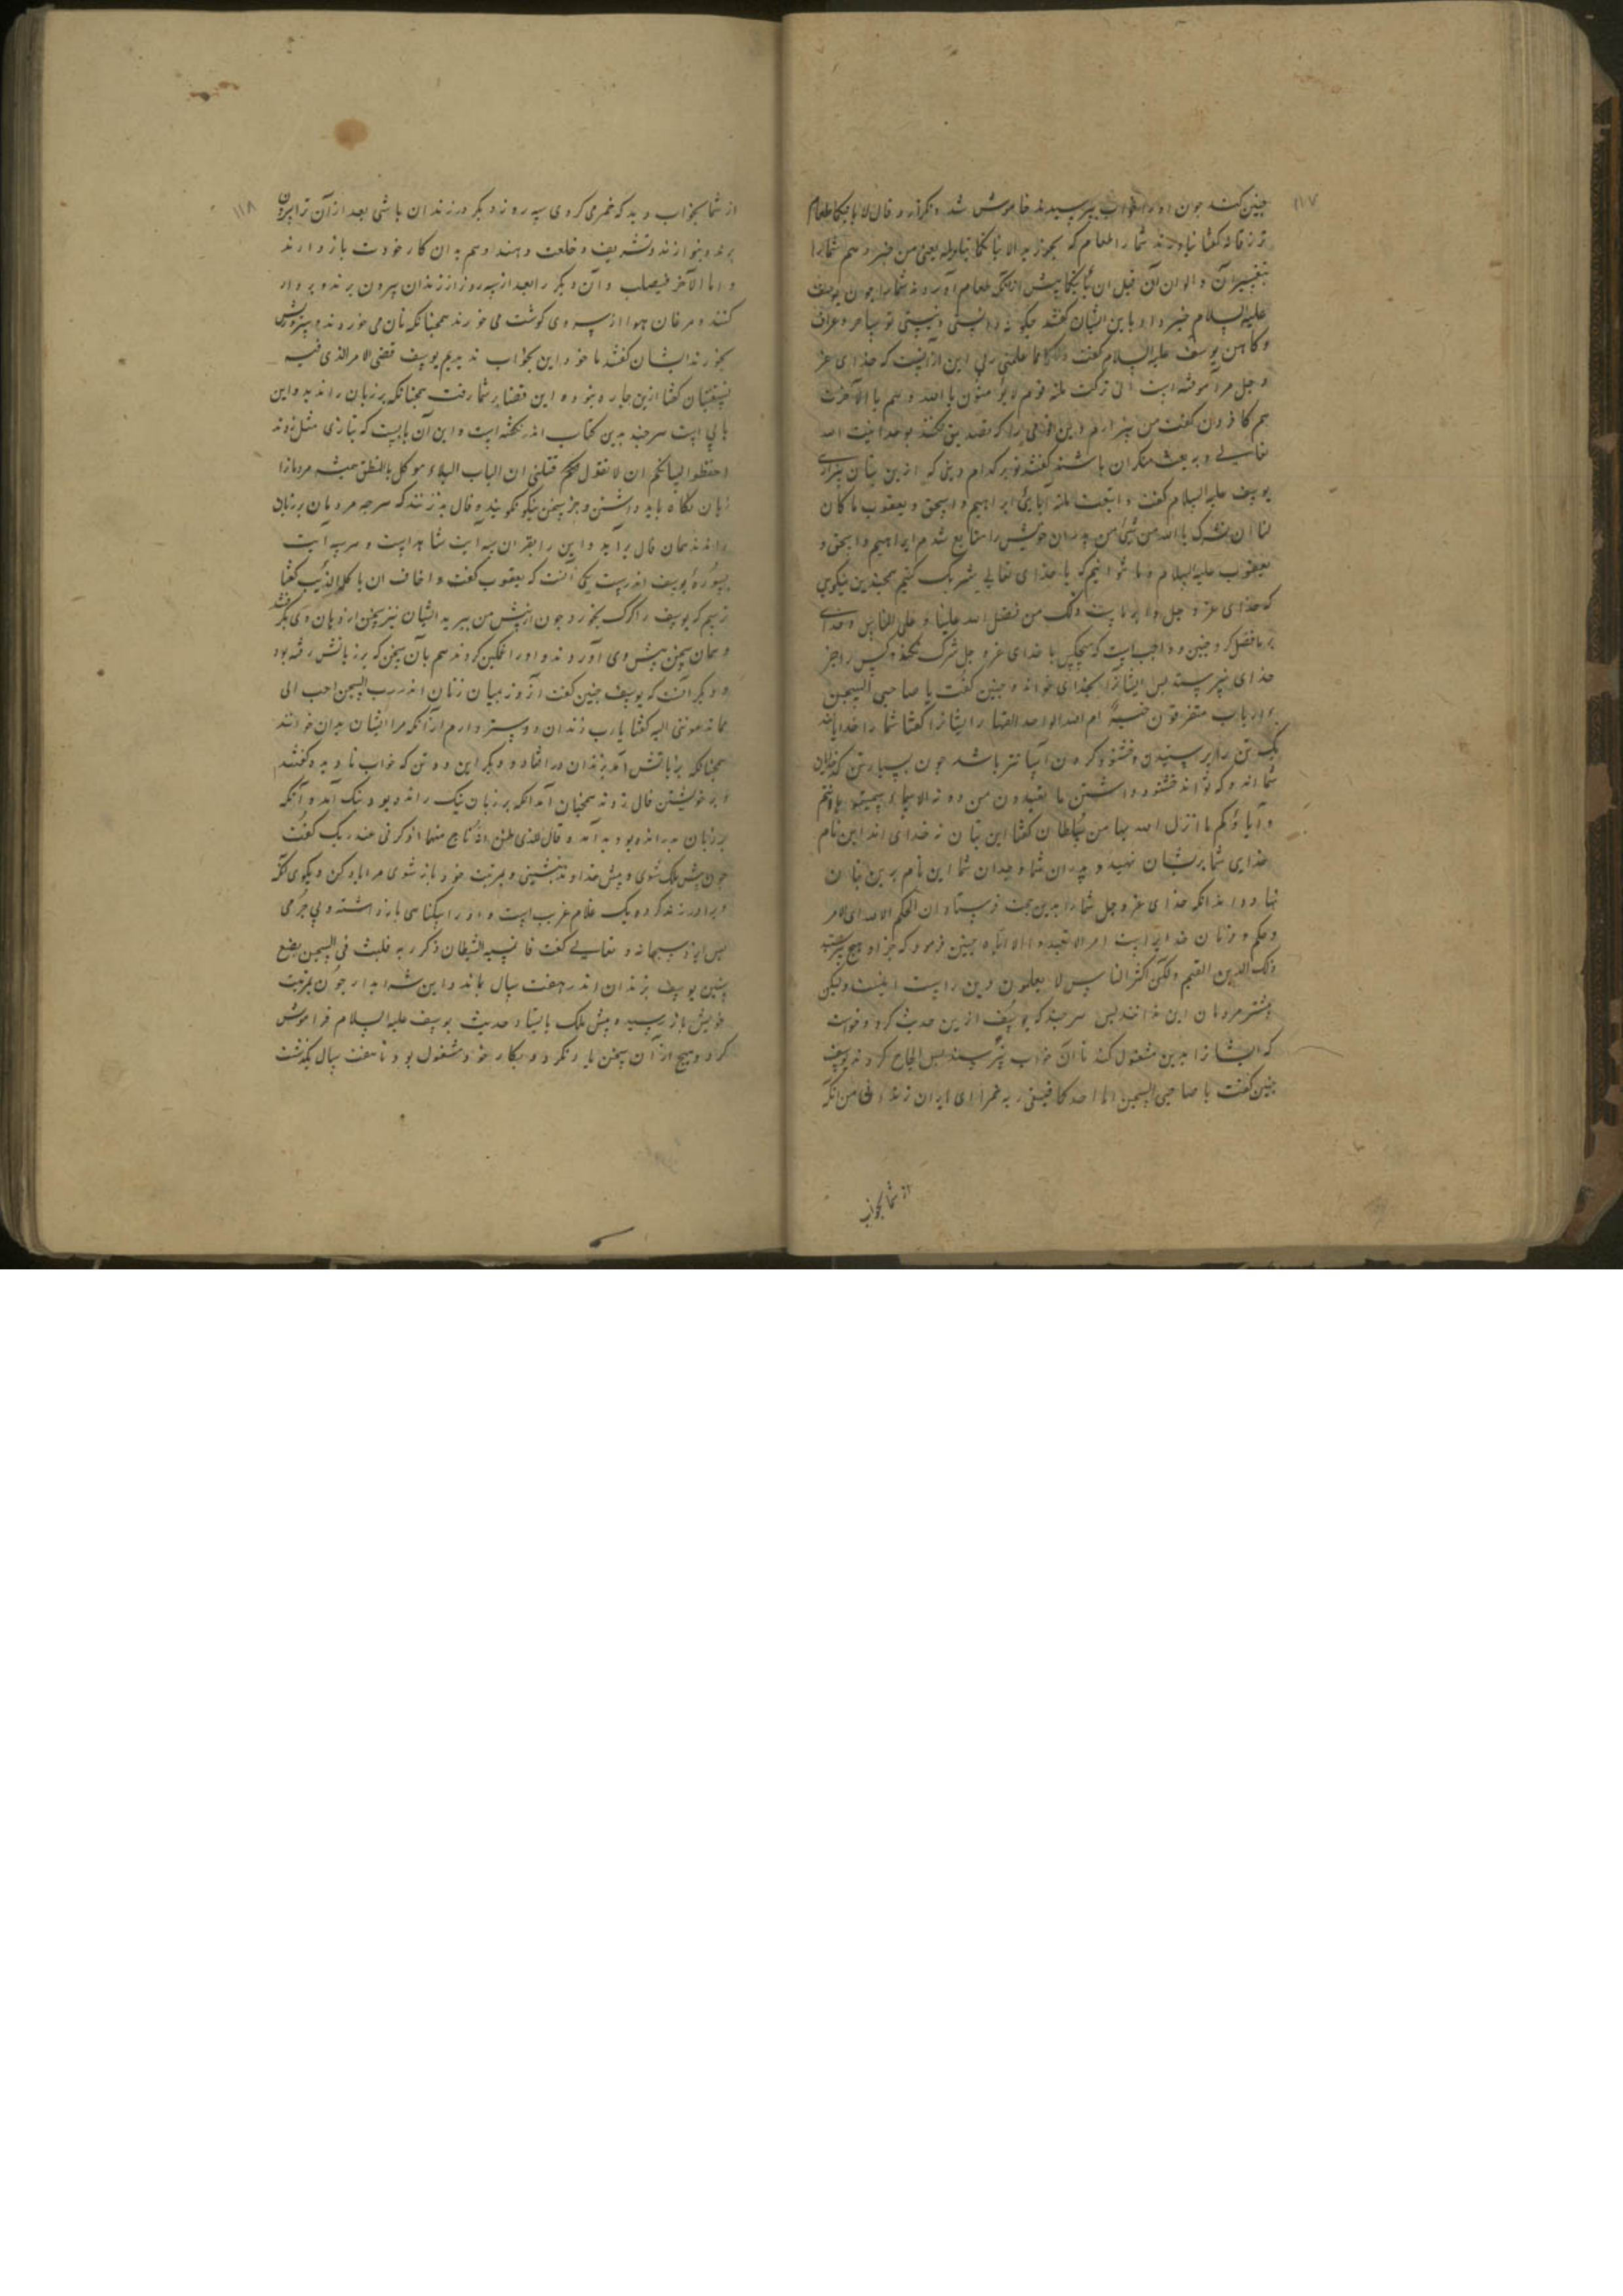 ۱۱۷
چنین کنند چون او را خواب بپرسیدند خاموش شد و نکرآورد قال لا یاتیکما طعام
ترزقانه کفتا نیاورند شما را طعام که بخورید الا نباتکما بتاویله یعنی من خبر دهم شما را
بتفسیر آن و الوان آن قبل ان یاتیکما پیش از آنکه طعام آورند شما را چون یوسف
علیه السلام خبر داد باین ایشان کفتند چکونه دانستی و نیستی تو ساحر و عراف
و کاهن یوسف علیه السلام کفت ذلکما مما علمنی ربی این از آنست که خدای عز
و جل مرا آموخته است انی ترکت ملة قوم لا یؤمنون بالله و هم بالآخرة
هم کافرون کفت من بیزارم از دین قومی را که تصدیق نکنند بوحدانیت الله
تعالی و به بعث منکران باشند کفتند تو بر کدام دینی که ازین بتان بیزاری
یوسف علیه السلام کفت و اتبعت ملة آبایی ابراهیم و اسحق و یعقوب ما کان
لنا ان نشرک بالله من شیء من پدران خویش را متابع شدم ابراهیم و اسحق و
یعقوب علیه السلام و ما نتوانیم که با خدای تعالی شریک کنیم همچنین نیکویی
که خدای عز و جل داد ما را است ذلک من فضل الله علینا و علی الناس و خدای
بر ما فضل کرد چنین و واجب است که هیچکس با خدای عز و جل شرک نکند و کس را جز
خدای نپرستد پس ایشانرا بخدای خواند و چنین کفت یا صاحبی السجن
ءارباب متفرقون خیر ام الله الواحد القهار ایشانرا کفتا شما را خدایان
یک تن را پرستیدن و خشنود کردن آسانتر باشد چون بسیار تن که خدایان
شما اند و که تواند خشنود داشتن ما تعبدون من دونه الا اسماء سمیتموها انتم
و آباؤکم ما انزل الله بها من سلطان کفتا این بتان نه خدای اند این نام
خدایی شما برشان نهید و پدران شما و جدان شما این نام برین بتان
نهادند آنکه خدای عز و جل شما را بدین حجت فرستاد ان الحکم الا لله ای الامر
و حکم و فرمان خدایراست امر الا تعبدوا الا ایاه چنین فرمود که جز او هیچ نپرستید
ذلک الدین القیم و لکن اکثر الناس لا یعلمون دین راست اینست ولیکن
بیشتر مردمان این ندانند پس هر چند که یوسف ازین حدیث کرد و خواست
که ایشانرا بدین مشغول کند تا آن خواب نپرسند پس الحاح کردند یوسف
چنین کفت یا صاحبی السجن اما احدکما فیسقی ربه خمرا ای یاران زندانی من آنکه
از شما بخواب
۱۱۸
از شما بخواب دید که خمر می کردی سه روز دیکر در زندان باشی بعد از آن ترا بیرون
برند و بنوازند و تشریف و خلعت دهند و هم به آن کار خودت باز دارند
و اما الآخر فیصلب و آن دیکر را بعد از سه روز از زندان بیرون برند و بر دار
کنند و مرغان هوا از سر وی کوشت می خورند همچنانکه نان می خوردند
بخورند ایشان کفتند ما خود این بخواب ندیدیم یوسف قضی الامر الذی فیه
تستفتیان کفتا ازین چاره نبود و این قضا بر شما رفت همچنانکه بر زبان راندید و این
بابی است هر چند بدین کتاب اندر نکفته است و این آن بابیست که بتازی مثل زدند
احفظوا لسانکم ان لا تقول حکم فتبتلی ان الباب البلاء موکل بالنطق همیشه مردم را
زبان نکاه باید داشتن و جز سخن نیکو نکویند و فال بد نزنند که هر چه مردمان بر زبان
رانند همان فال برآید و این را بقران سه آیت شاهد است و هر سه آیت
بسوره یوسف اندرست یکی آنست که یعقوب کفت و اخاف ان یاکله الذئب کفتا
ترسم که یوسف را کرک بخورد چون از پیش من ببرید ایشان نیز سخن از دهان وی بکرفتند
و همان سخن پیش وی آوردند و او را غمکین کردند هم بآن سخن که بر زبانش رفته بود
و دیکر آنست که یوسف چنین کفت آنروز میان زنان اندر رب السجن احب الی
مما یدعوننی الیه کفتا یا رب زندان دوستر دارم از آنکه مرا ایشان بدان خوانند
همچنانکه بر زبانش آمد بزندان در افتاد و دیکر این دو تن که خواب نادیده کفتند
و بر خویشتن فال زدند همچنان آمد آنکه بر زبان نیک رانده بود نیک آمد و آنکه
بر زبان بد رانده بود بد آمد و قال للذی ظن انه ناج منهما اذکرنی عند ربک کفت
چون پیش ملک شوی و پیش خداوند بنشینی و بمرتبت خود باز شوی مرا یاد کن و بکوی که
ویرا در زندان کرده یک غلام غریب است و او را بیکناهی باز داشته و بی جرمی
پس ایزد سبحانه و تعالی کفت فانسیه الشیطان ذکر ربه فلبث فی السجن بضع
سنین یوسف بزندان اندر هفت سال بماند و این شرابدار چون بمرتبت
خویش باز رسید و پیش ملک بایستاد حدیث یوسف علیه السلام فراموش
کرد و هیچ از آن سخن یاد نکرد و بکار خود مشغول بود تا هفت سال بگذشت